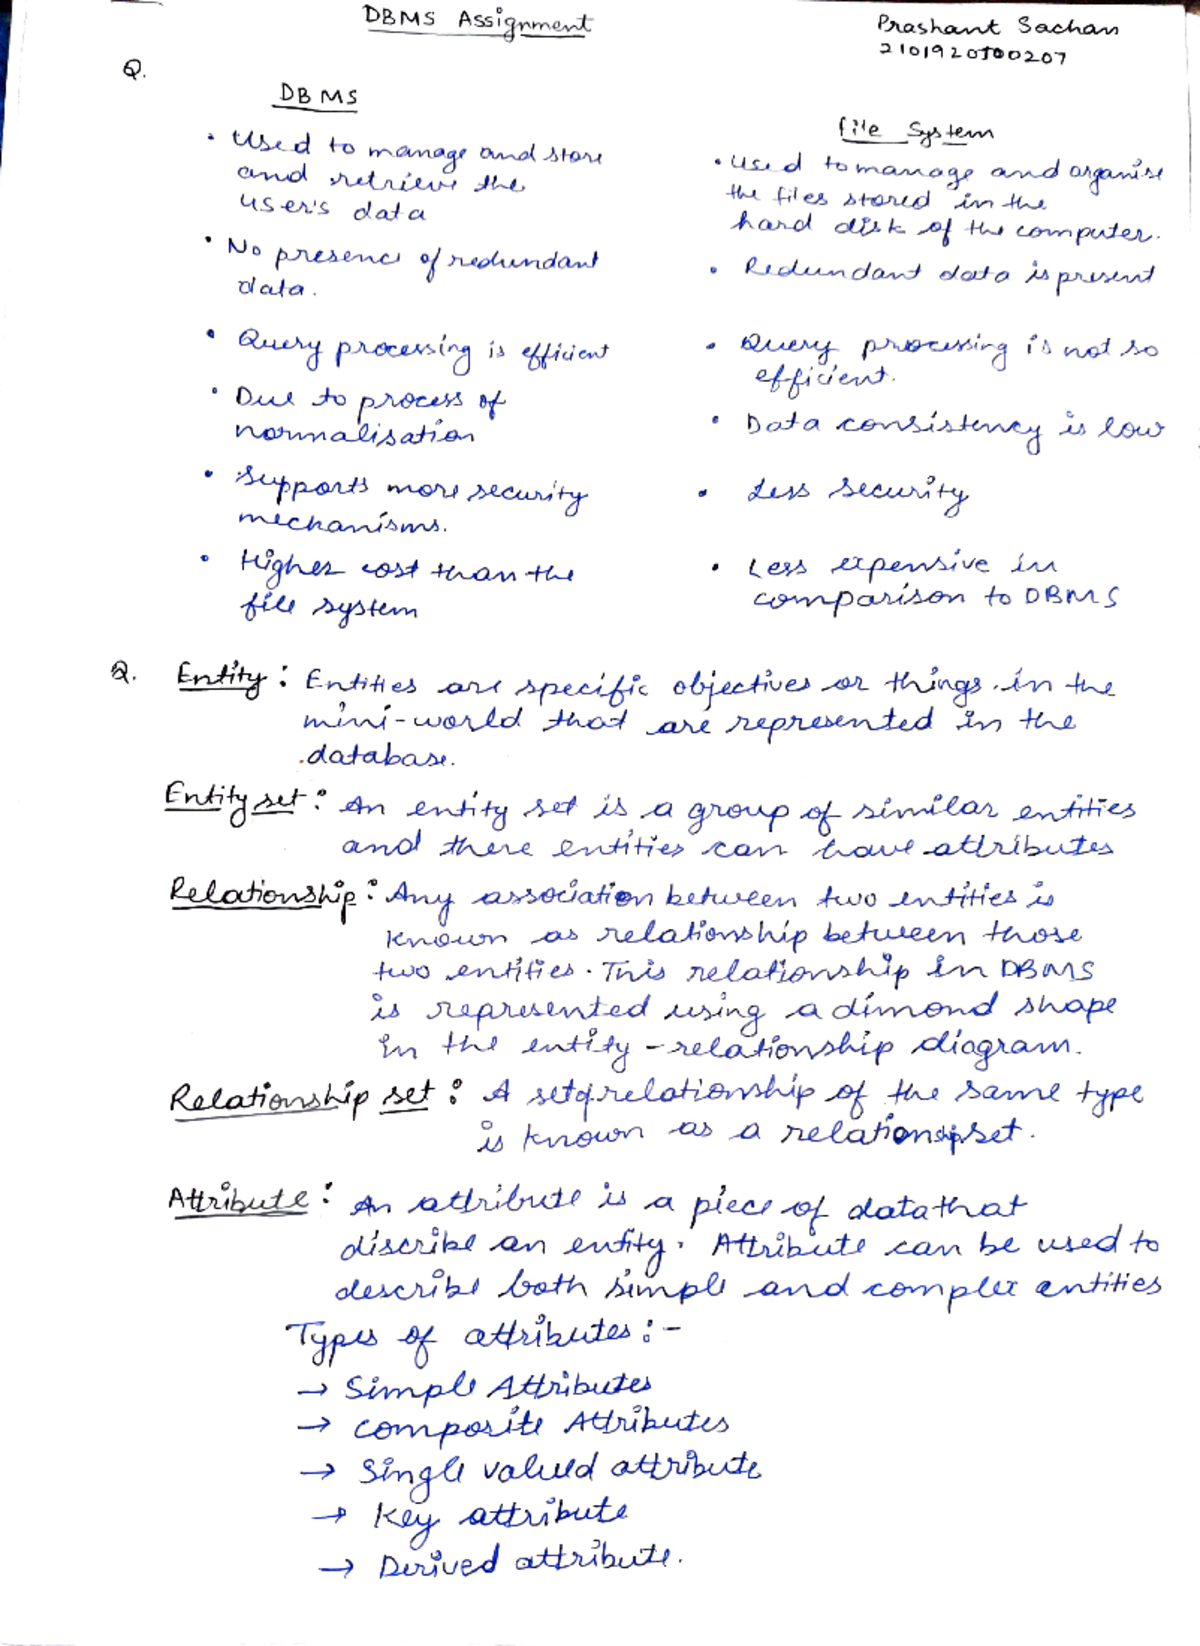 DBMS Assignment
Prashant Sachan
Q.
DBMS
• Used to manage and store
and retrieve the
user's data
• No presence of redundant
data.
• Query processing is efficient
• Due to process of
normalisation
• Supports more security
mechanisms.
• Higher cost than the
file system
file System
• Used to manage and organise
the files stored in the
hard disk of the computer.
• Redundant data is present
• Query processing is not so
efficient.
• Data consistency is low
• Less security
• Less expensive in
comparison to DBMS
Q. Entity : Entities are specific objectives or things in the
mini-world that are represented in the
database.
Entity set : An entity set is a group of similar entities
and there entities can have attributes
Relationship : Any association between two entities is
known as relationship between those
two entities. This relationship in DBMS
is represented using a dimond shape
in the entity - relationship diagram.
Relationship set : A set of relationship of the same type
is known as a set.
Attribute : An attribute is a piece of data that
discribe an entity. Attribute can be used to
describe both simple and complex entities
Types of attributes : -
→ Simple Attributes
→ composite Attributes
→ Single valued attribute
→ Key attribute
→ Derived attribute.